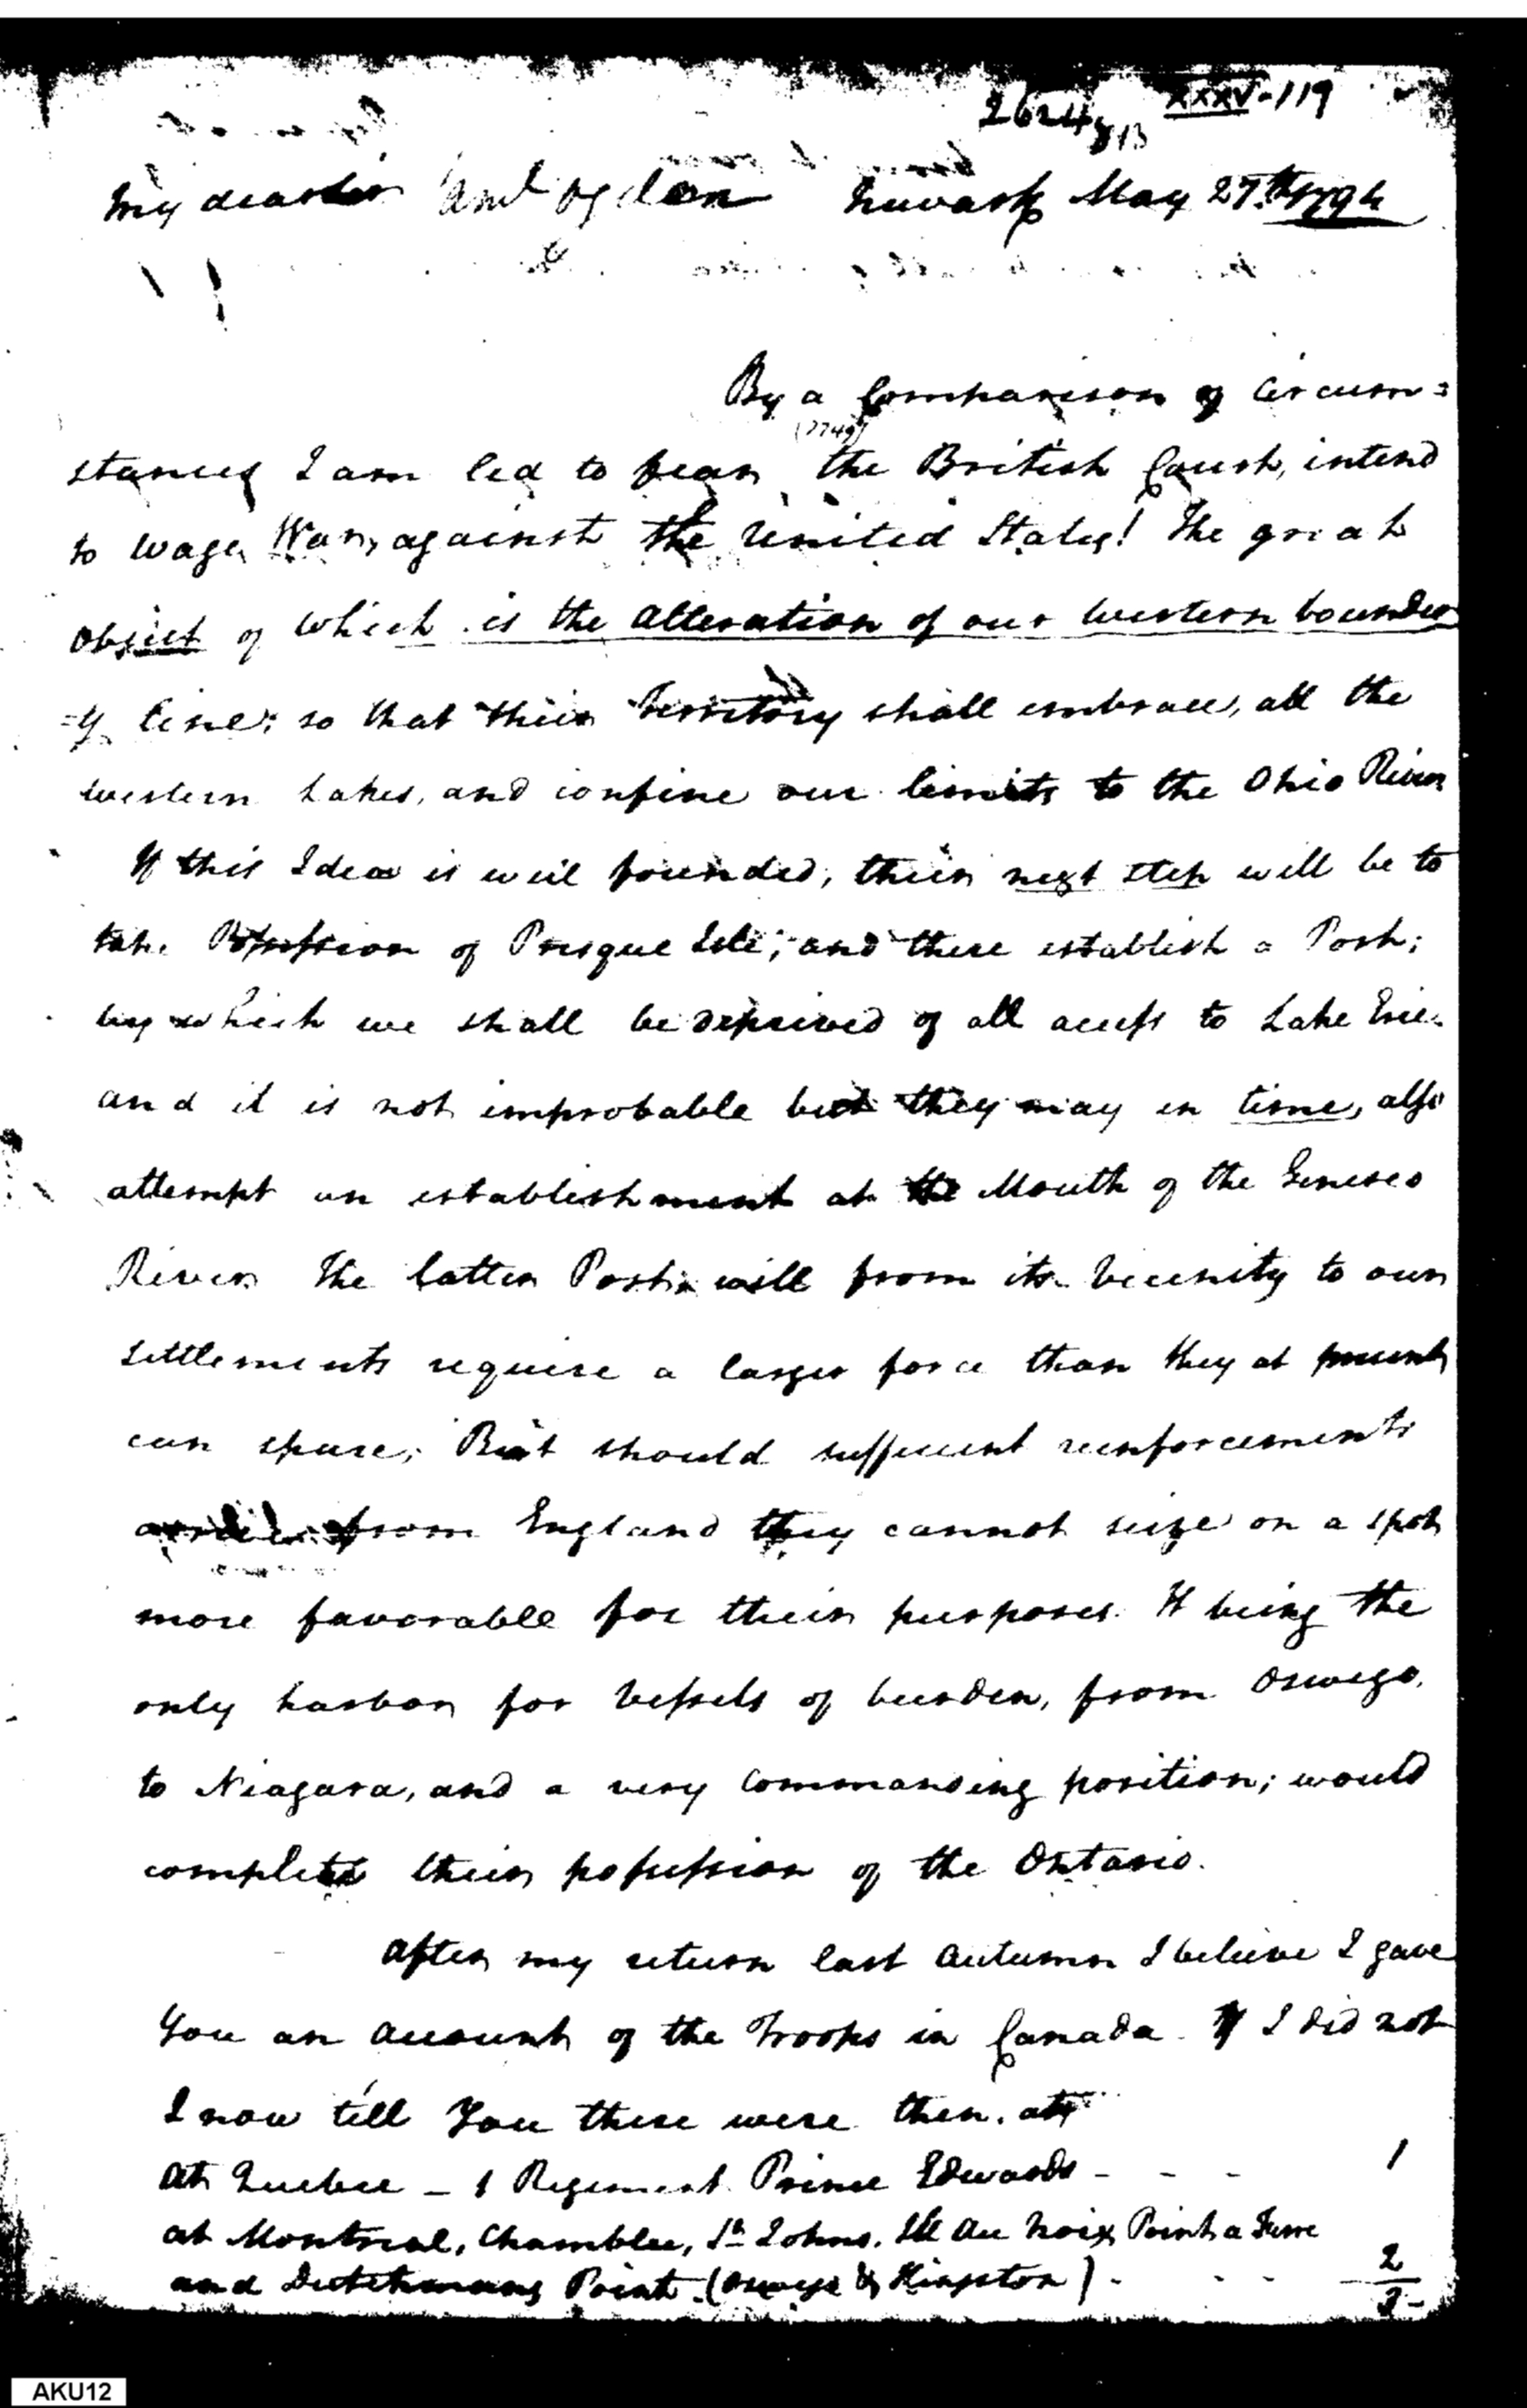 XXXV-119
2624
My dear Sir Newark May 27th 1794
By a Comparison of Circum=
(7749)
stances I am led to fear the British Court, intend
to wage War, against the United States! The great
object of which is the alteration of our Western boundar
=y line; so that their Territory shall embrace, all the
western Lakes, and confine our limits to the Ohio River
If this Idea is well founded, their next step will be to
take Possession of Presque Isle; and there establish a Post;
by which we shall be deprived of all access to Lake Erie.
and it is not improbable but they may in time, also
attempt an establishment at the Mouth of the Genesee
River The latter Post will from its Vicinity to our
settlements require a larger force than they at present
can spare; But should sufficient reinforcements
arrive from England they cannot seize on a spot
more favorable for their purposes. It being the
only harbor for Vessels of burden, from Oswego,
to Niagara, and a very Commanding position; would
complete their possession of the Ontario.
After my return last Autumn I believe I gave
You an account of the Troops in Canada. If I did not
I now tell You there were then. at
at Quebec - 1 Regiment Prince Edwards - - - 1
at Montreal, Chamblee, St Johns, Isle Au Noix Point a Ferre
and Dutchmans Point. (Oswego & Kingston) - - - 2
3-
AKU12